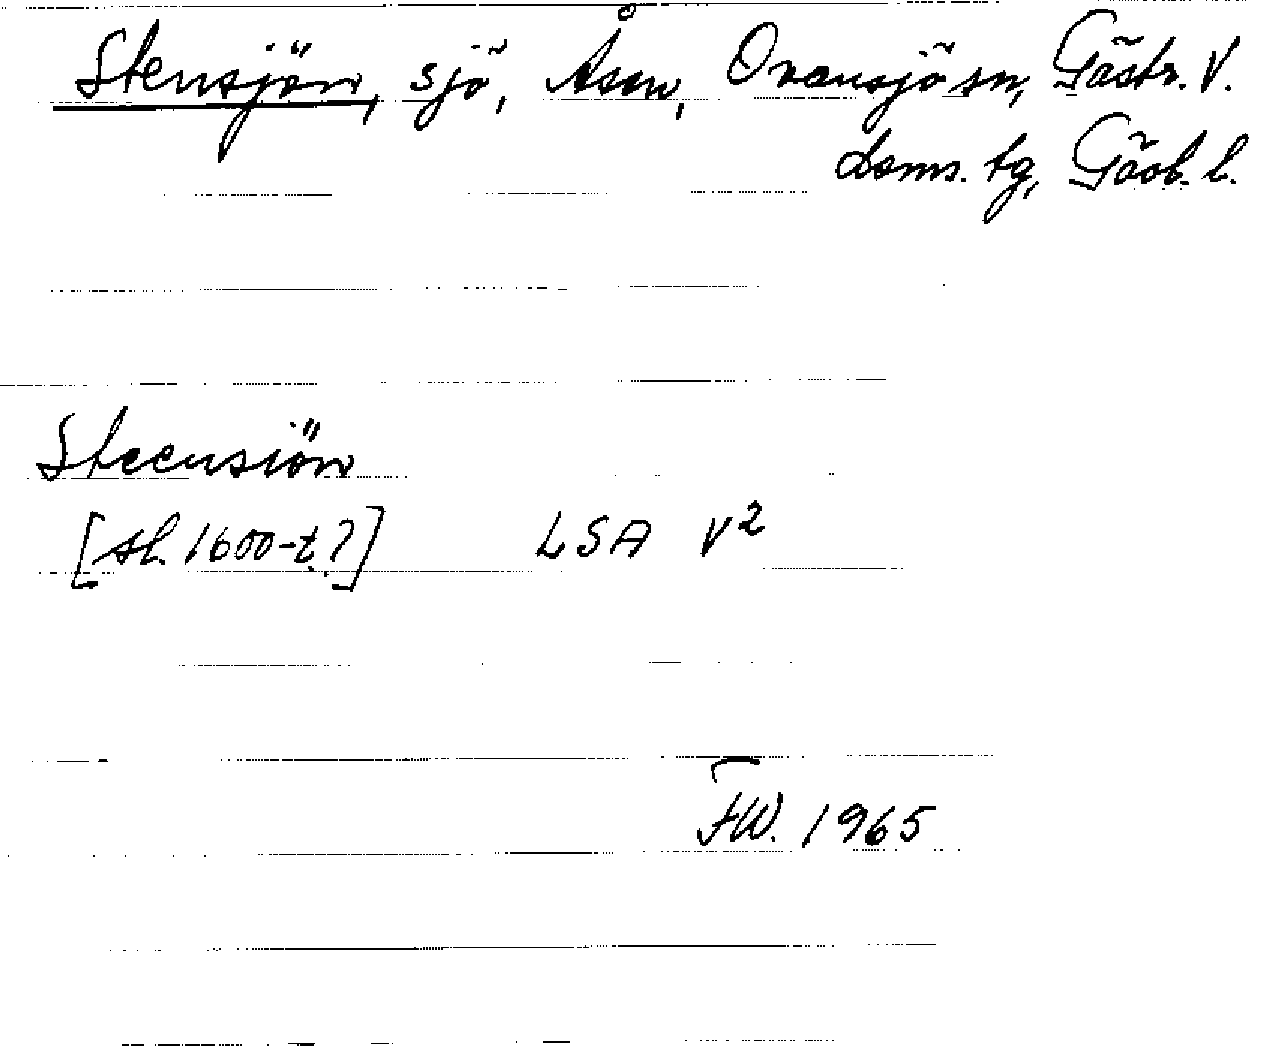 Stensjön, sjö, Åsen, Ovansjö sn, Gästr. V.
doms. tg, Gävb. l.
Steensiön
[sl. 1600-t.?] LSA V²
FW. 1965